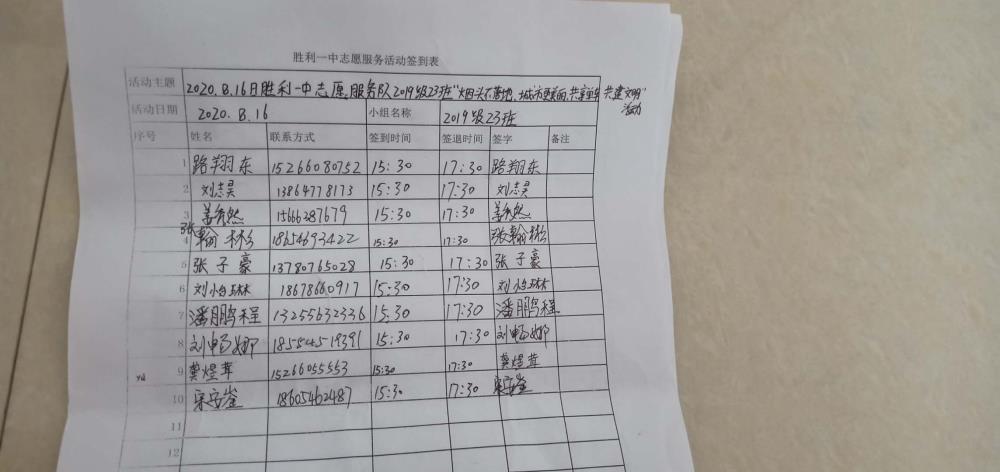 胜利一中志愿服务活动签到表
活动主题 2020.8.16日胜利一中志愿服务队2019级23班"烟头不落地,城市更美丽,共享单车 共建文明"
活动
活动日期 2020.8.16 小组名称 2019级23班
序号 姓名 联系方式 签到时间 签退时间 签字 备注
1 路翔东 15266080752 15:30 17:30 路翔东
2 刘志昊 13864778173 15:30 17:30 刘志昊
3 姜有然 15666287679 15:30 17:30 姜有然
4 张翰彬 18654693422 15:30 17:30 张翰彬
5 张子豪 13780765028 15:30 17:30 张子豪
6 刘怡琳 18678660917 15:30 17:30 刘怡琳
7 潘鹏程 13255632336 15:30 17:30 潘鹏程
8 刘畅娜 18554519391 15:30 17:30 刘畅娜
9 龚煜茸 15266055553 15:30 17:30 龚煜茸
10 宋安崟 18605462487 15:30 17:30 宋安崟
11
12